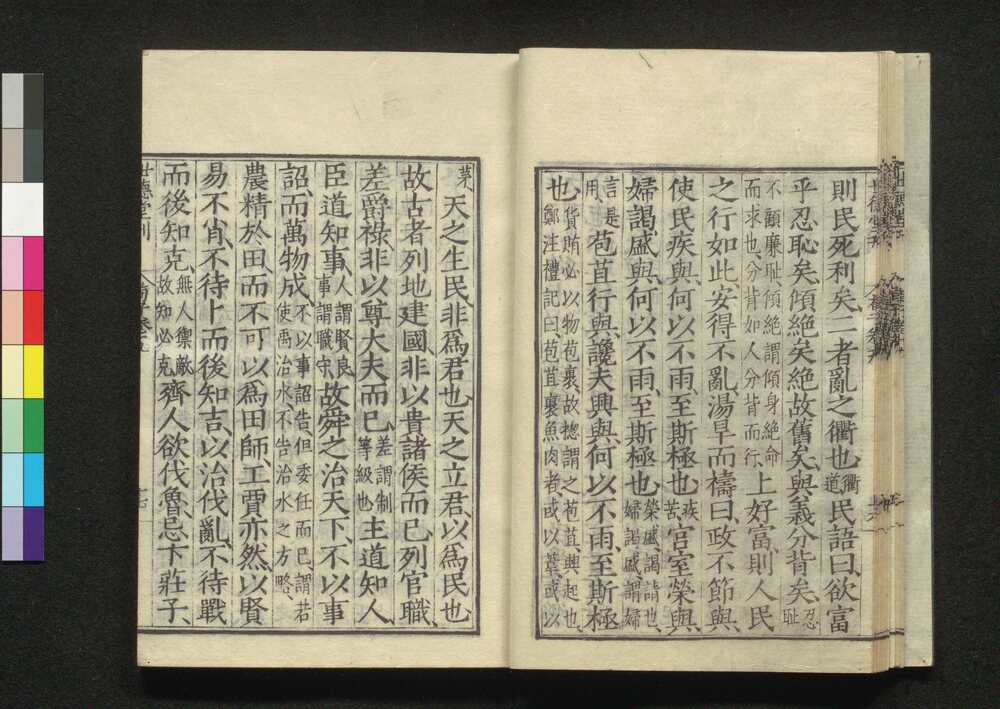 則民死利矣二者亂之衢也衢道民語曰欲富
乎忍恥矣傾絶矣絶故舊矣與義分背矣忍耻
不顧廉耻傾絶謂傾身絶命而求也分背如人分背而行上好富則人民
之行如此安得不亂湯旱而禱曰政不節與
使民疾與何以不雨至斯極也疾苦宮室榮與
婦謁盛與何以不雨至斯極也榮盛謁請也婦謁盛謂婦
言是用苞苴行與讒夫興與何以不雨至斯極
也貨賄必以物苞裹故揔謂之苞苴興起也鄭注禮記曰苞苴裹魚肉者或以葦或以
茅天之生民非爲君也天之立君以爲民也
故古者列地建國非以貴諸侯而已列官職
差爵祿非以尊大夫而已差謂制等級也主道知人
臣道知事人謂賢良事謂職守故舜之治天下不以事
詔而萬物成不以事詔告但委任而已謂若使禹治水不告治水之方略
農精於田而不可以爲田師工賈亦然以賢
易不肖不待卜而後知吉以治伐亂不待戰
而後知克無人禦敵故知必克齊人欲伐魯忌卞莊子
世德堂刊